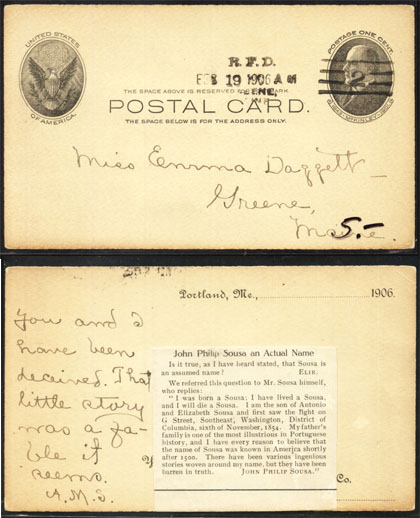 UNITED STATES
OF AMERICA.
R.F.D.
FEB 19 1906 A M
ENE,
POSTAGE ONE CENT.
2
THE SPACE ABOVE IS RESERVED MARK.
POSTAL CARD.
THE SPACE BELOW IS FOR THE ADDRESS ONLY.
McKINLEY
Miss Emma Daggett
Greene,
Maine.
5.-
Portland, Me., 1906.
You and I
have been
deceived. That
little story
was a fa-
ble it
seems.
A.M.S.
John Philip Sousa an Actual Name
Is it true, as I have heard stated, that Sousa is
an assumed name? ELIE.
We referred this question to Mr. Sousa himself,
who replies:
"I was born a Sousa; I have lived a Sousa,
and I will die a Sousa. I am the son of Antonio
and Elizabeth Sousa and first saw the flight on
G Street, Southeast, Washington, District of
Columbia, sixth of November, 1854. My father's
family is one of the most illustrious in Portuguese
history, and I have every reason to believe that
the name of Sousa was known in America shortly
after 1500. There have been various ingenious
stories woven around my name, but they have been
barren in truth. JOHN PHILIP SOUSA."
Y
Co.